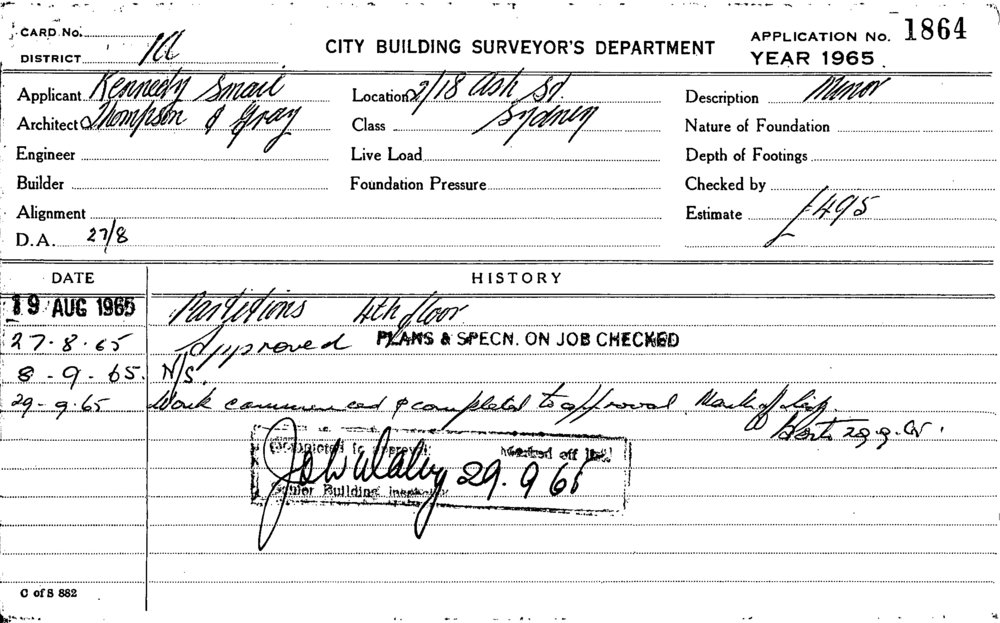 CARD No.
DISTRICT
CITY BUILDING SURVEYOR'S DEPARTMENT
APPLICATION No. 1864
YEAR 1965
Applicant Kennedy Smail
Location 2/18 Ash St.
Description Minor
Architect Thompson & Gray
Class Sydney
Nature of Foundation
Engineer
Live Load
Depth of Footings
Builder
Foundation Pressure
Checked by
Alignment
Estimate £495
D.A. 27/8
DATE
HISTORY
19 AUG 1965 Partitions 4th floor
27.8.65 Approved PLANS & SPECN. ON JOB CHECKED
8-9-65. N/S.
29-9.65 Work commenced & completed to approval
29.9.65.
Completed to approval Marked off list
29.9 65
Senior Building Inspector
C of S 882